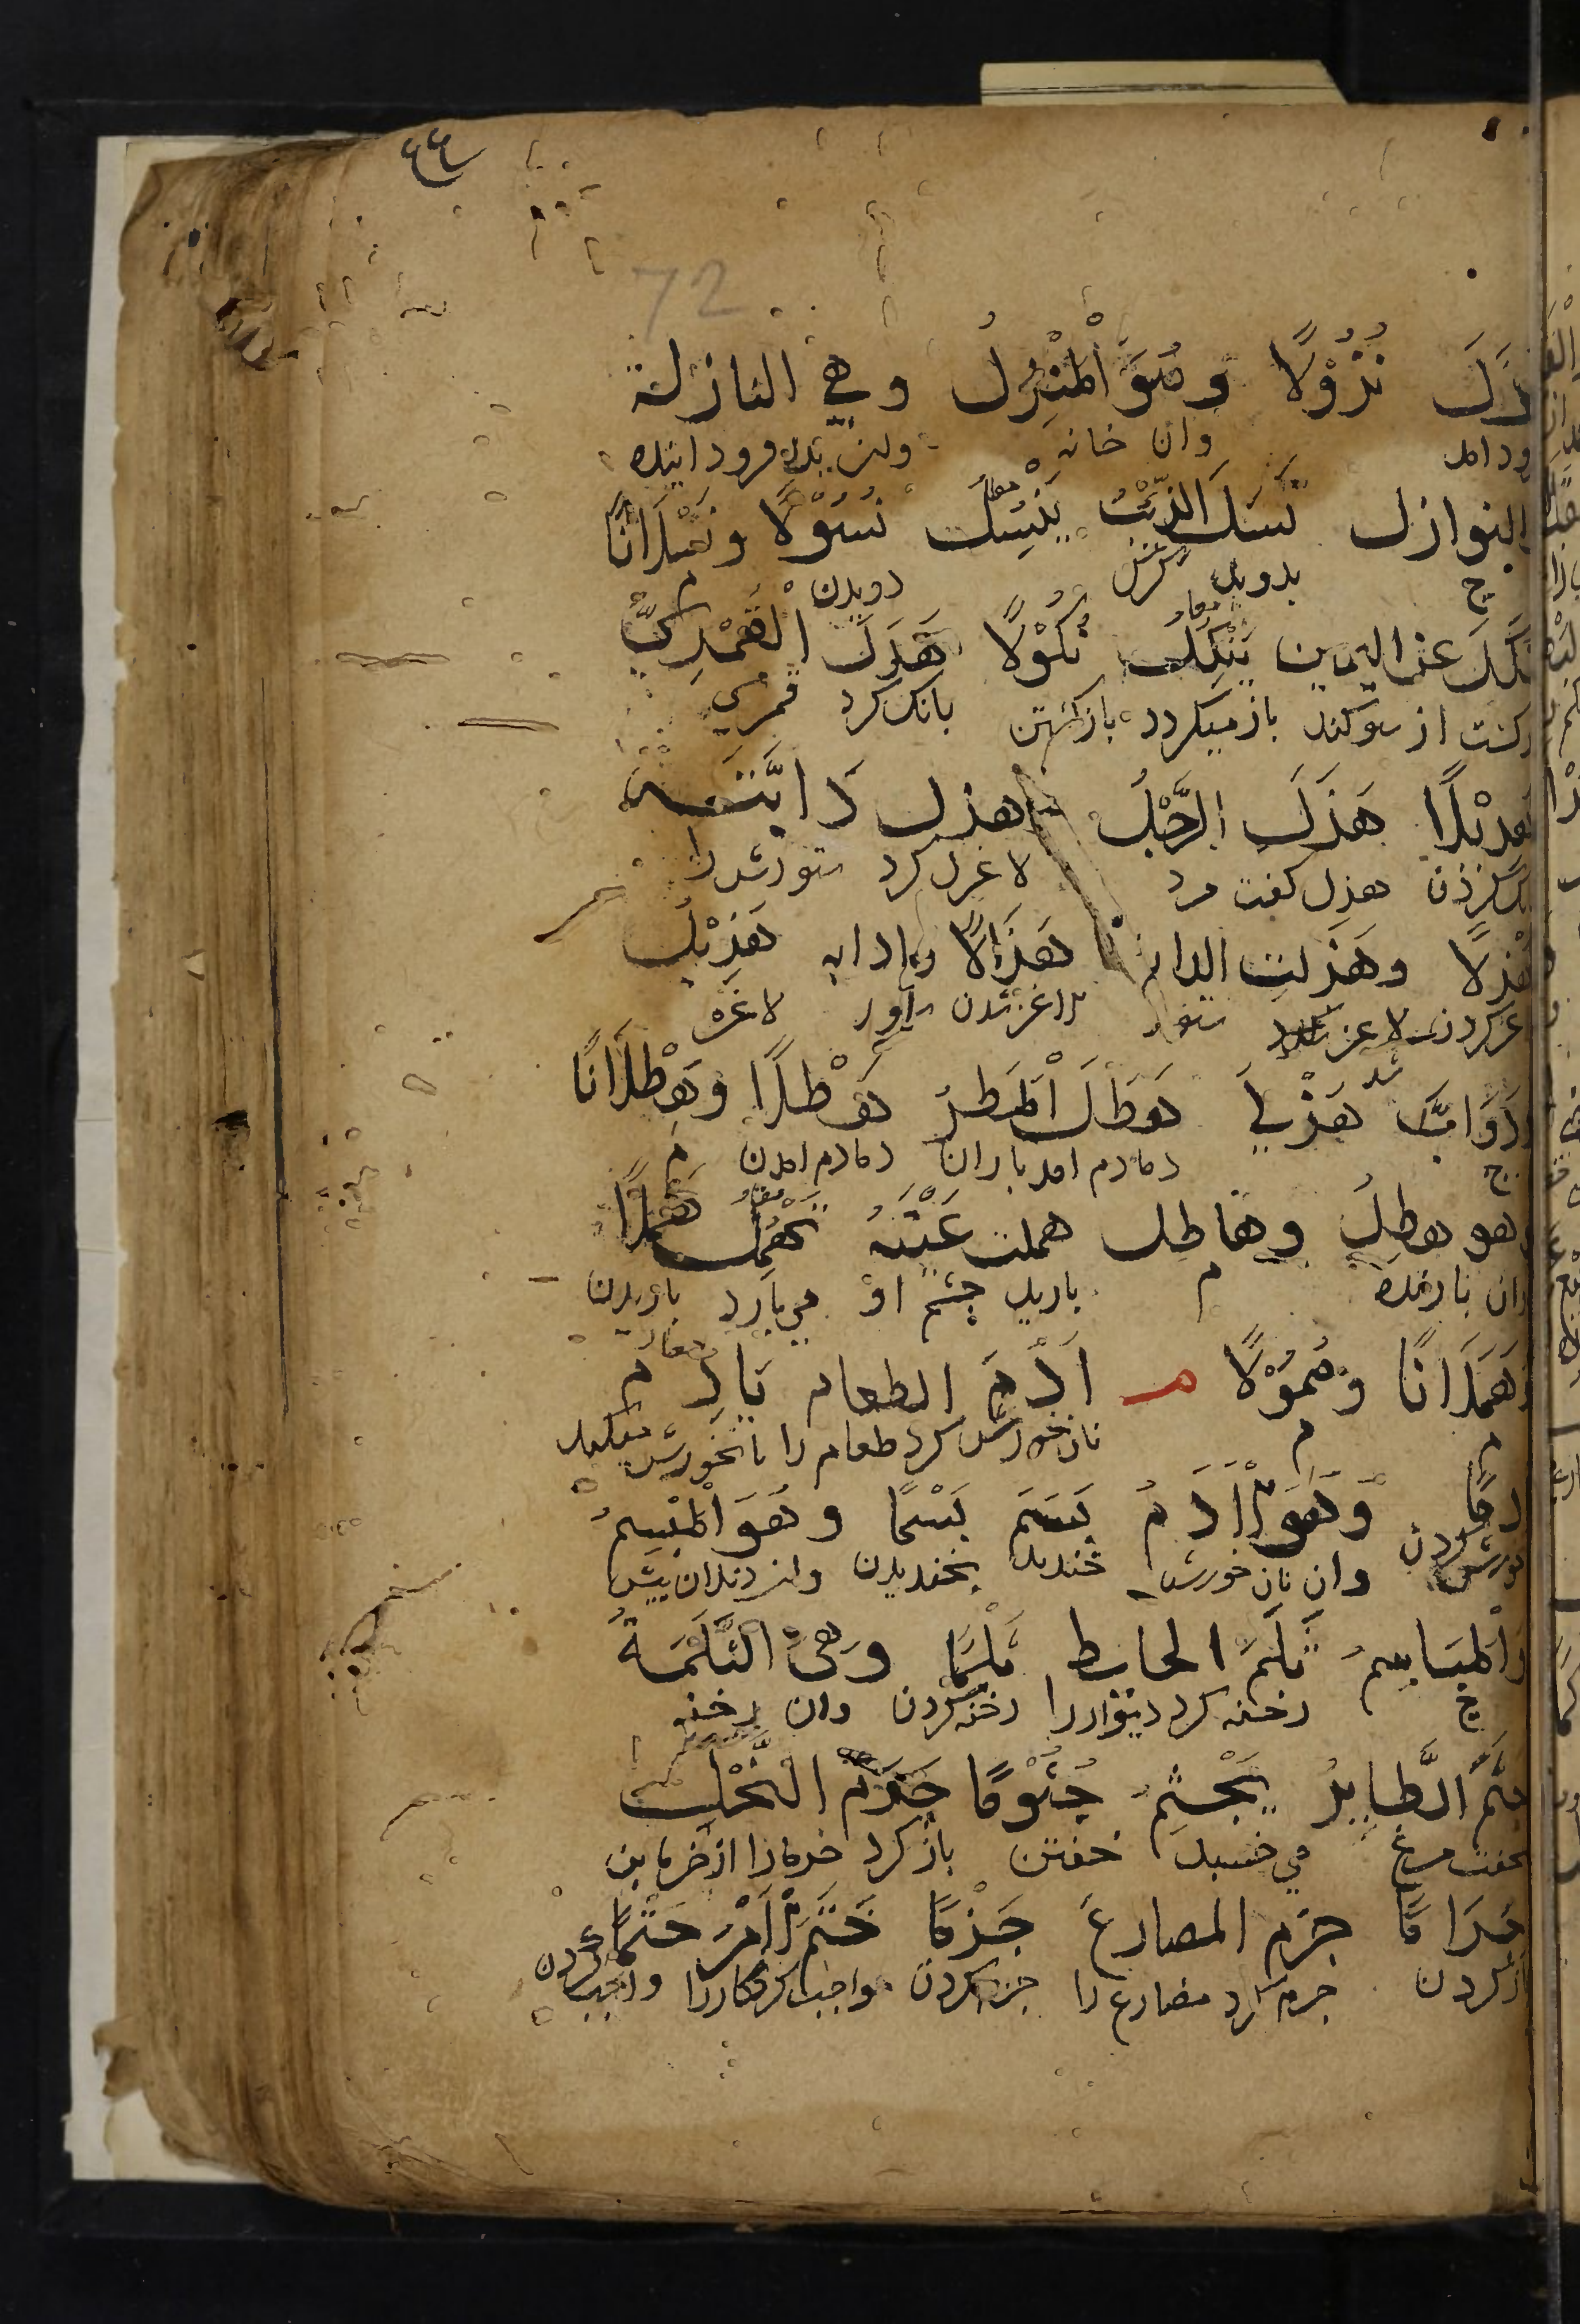 ٤٤
72
نَزَلَ نُزُوْلًا وَهُوَ الْمَنْزِلُ وهي النازلة
ود امد وان خانه وان بلاء فرود اینده
النوازل نَسَلَ الذِّئْبُ يَنْسِلُ نُسُوْلًا ونَسْلَانًا
ج بدوید کرک دویدن م
نَكَلَ عن اليمين يَنْكُلُ نُكُوْلًا هَدَلَ الْقُمْرِيُّ
کشت از سوکند باز میکردد باز کشتن بانک کرد قمری
هَدِيْلًا هَزَلَ الرَّجُلُ هزل دَابَّتَهُ
هزل کفت مرد لاغر کرد ستورش را
هَزْلًا وهَزَلَتِ الدابة هُزَالًا دابه هَزِيْلٌ
غر کردن لاغر شد ستور لاغر شدن ستور لاغر
ودَوَابُّ هَزْلَى هَطَلَ الْمَطَرُ هَطْلًا وهَطْلَانًا
ج دمادم امد باران دمادم امدن م
وهو هطِلٌ وهَاطِل هملت عَيْنَهُ تَهْمُلُ هَمْلًا
ان بارنده م بارید چشم او می بارد باریدن
وهَمَلَانًا وهُمُوْلًا م اَدَمَ الطعام يَادِم
م م نان خورش کرد طعام را نانخورش میکند
ادمًا وَهُوَ الْاَدَمُ بَسَمَ بَسْمًا وهُوَ الْمَبْسِمُ
خورش کردن وان نان خورش خندید بخندیدن وان دندان پیش
وَالْمَبَاسِمُ ثَلَمَ الحايط ثَلْمًا وهي الثَّلْمَةُ
ج رخنه کرد دیوار را رخنه کردن وان رخنه
جثَمَ الطَّايِرُ يَجْثِمُ جُثُوْمًا جَرَمَ النَّخْلَ
بخفت مرغ می خسبد خفتن باز کرد خرما را از خرمابن
جَرَامًا جزم المضارعَ جَزْمًا حَتَمَ الْاَمْرَ حَتْمًا
باز کردن جزم کرد مضارع را جزم کردن واجب کرد کار را واجب کردن